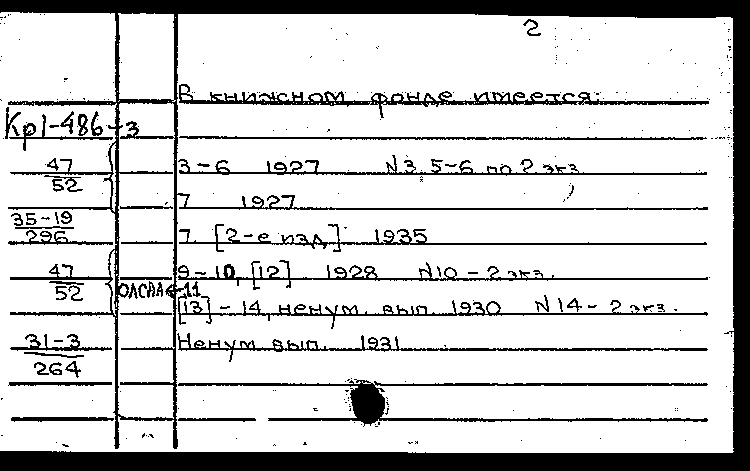 2
В книжном фонде имеется:
Кр1-486-3
47/52 3-6 1927 N3, 5-6 по 2 экз
7 1927
35-19/296 7 [2-е изд] 1935
47/52 9-10, [12] 1928 N10 - 2 экз.
ОЛСАА ← 11
[13] - 14, ненум. вып. 1930 N14 - 2 экз.
31-3/264 Ненум. вып. 1931